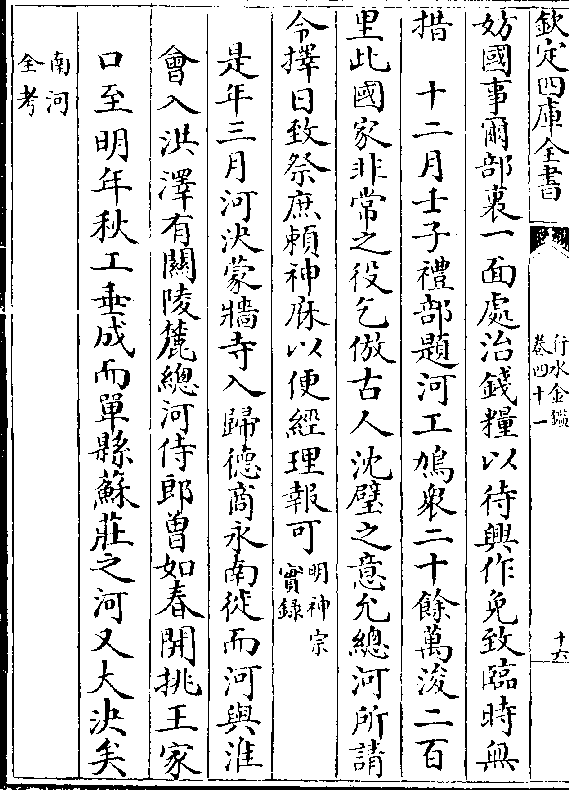 欽定四庫全書
行水金鑑
卷四十一
十六
妨國事爾部裏一面處治錢糧以待興作免致臨時無
措　十二月壬子禮部題河工鳩衆二十餘萬浚二百
里此國家非常之役乞倣古人沈璧之意允總河所請
令擇日致祭庶頼神庥以便經理報可明神宗
實錄
是年三月河決蒙牆寺入歸德商永南徙而河與淮
會入洪澤有關陵麓總河侍郎曾如春開挑王家
口至明年秋工垂成而單縣蘇莊之河又大決矣
南河
全考